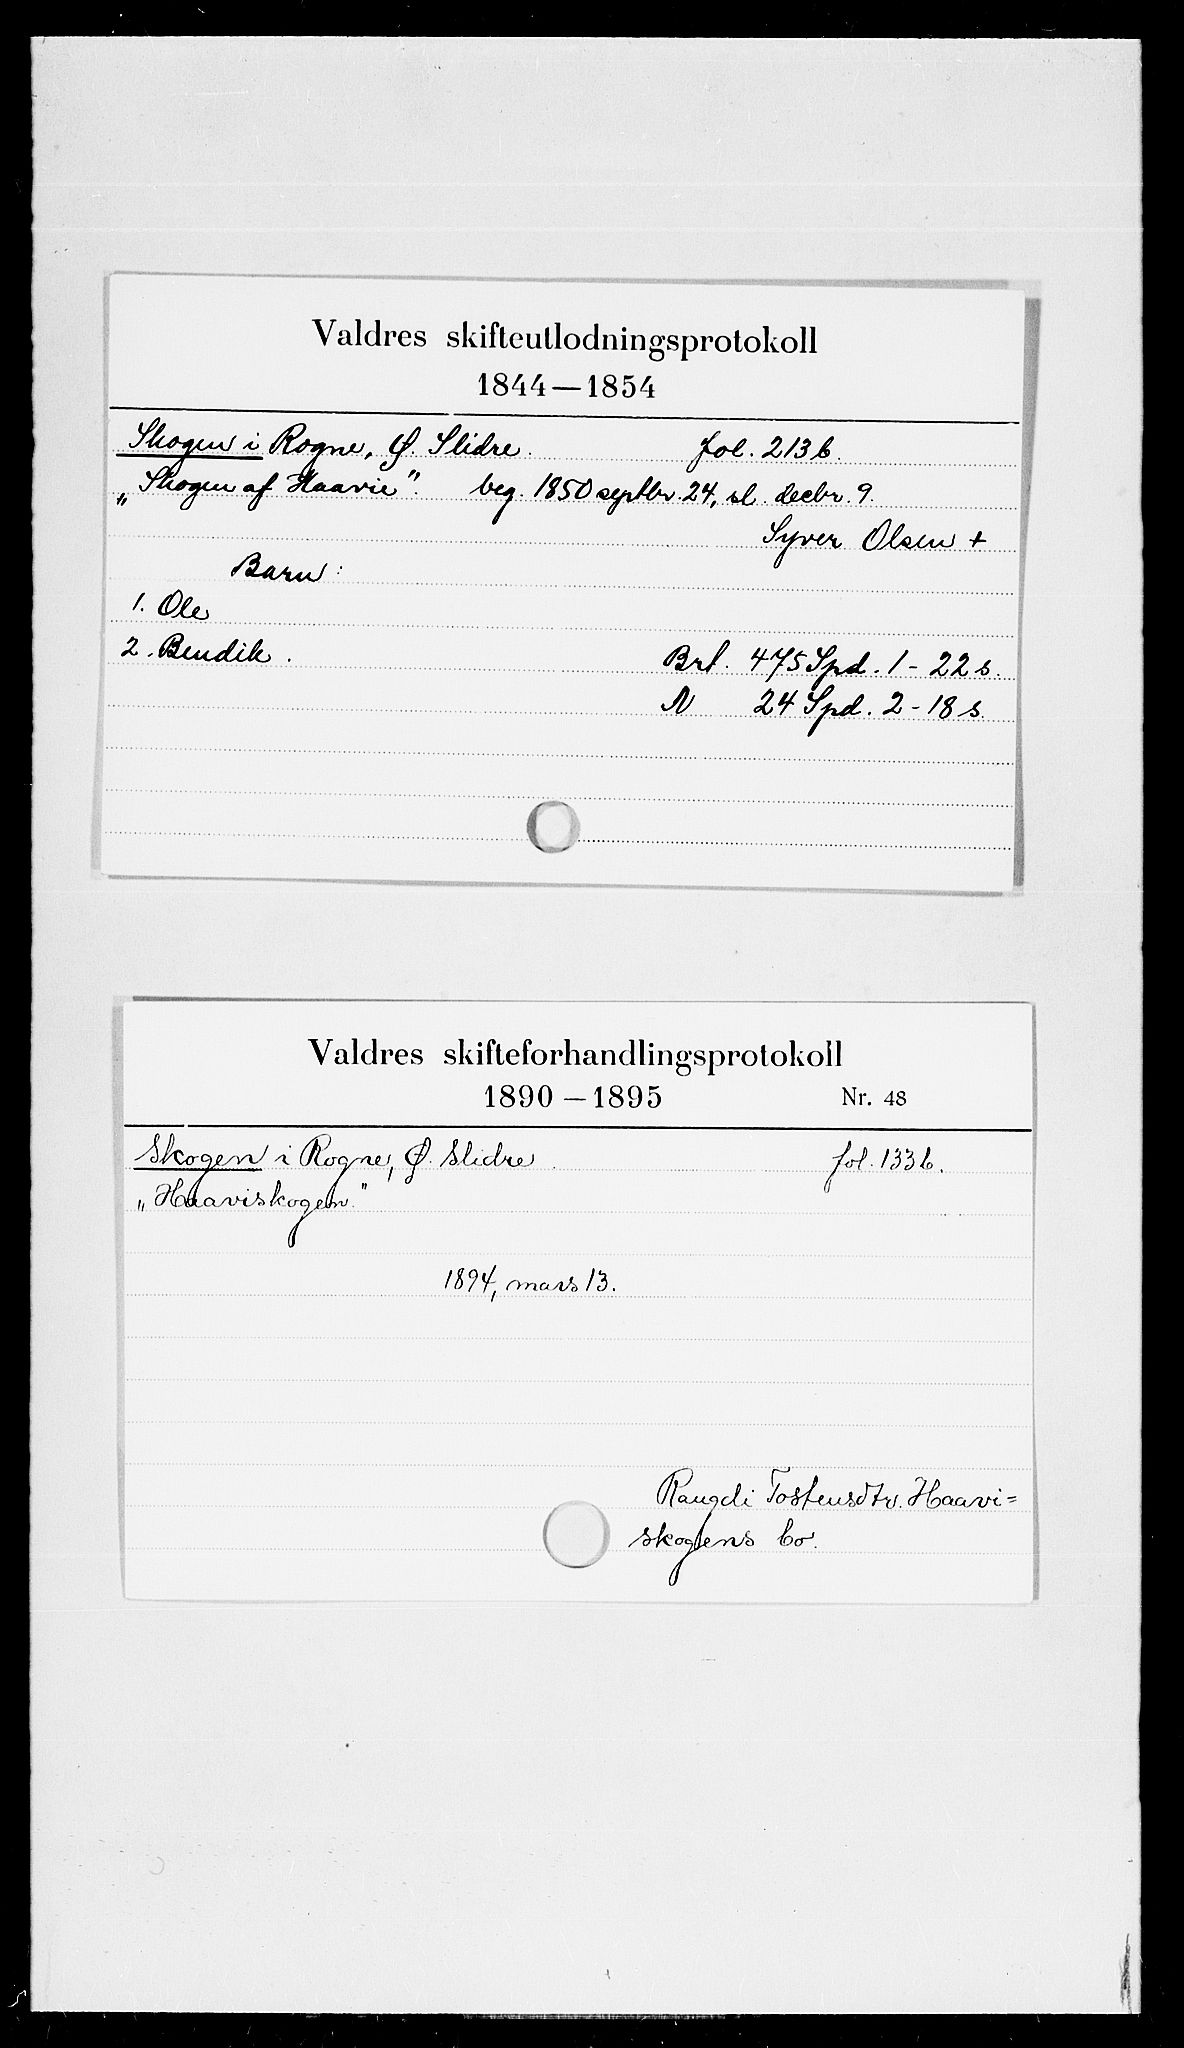 Valdres skifteutlodningsprotokoll
1844—1854
Skogen i Rogne, Ø. Slidre. fol. 213 b.
„Skogen af Haavie". beg. 1850 septbr. 24, sl. decbr. 9.
Syver Olsen +
Barn:
1. Ole
2. Bendik. Brt. 475 Spd. 1 - 22 s.
N 24 Spd. 2 - 18 s.
Valdres skifteforhandlingsprotokoll
1890—1895 Nr. 48
Skogen i Rogne, Ø. Slidre. fol. 133 b.
„Haaviskogen."
1894, mars 13.
Rangdi Tostensdtr. Haavi=
skogens bo.